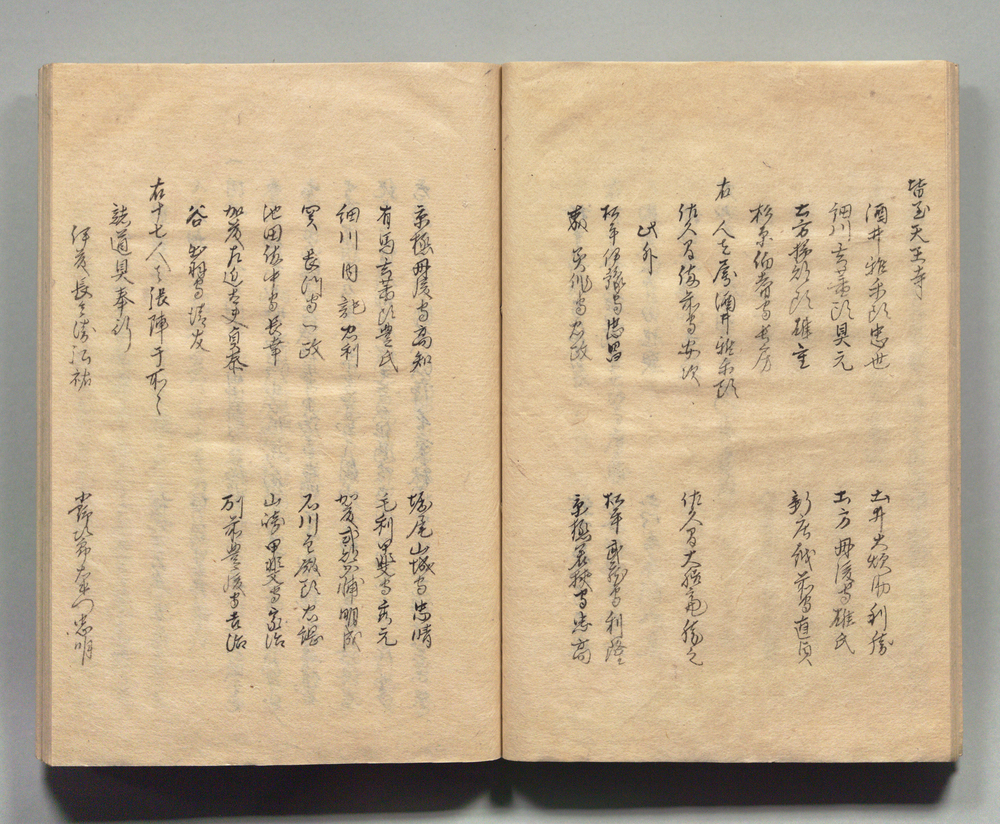 皆至天王寺
酒井雅楽頭忠世　土井大炊助利勝
細川玄蕃頭興元　土方丹後守雄氏
土方掃部頭雄重　新庄越前守直貞
杉原伯耆守長房
右八人者属酒井雅楽頭
佐久間備前守安次　佐久間大膳亮勝之
此外
松平伊豫守忠昌　松平武蔵守利隆
森美作守忠政　京極若狭守忠高
京極丹後守高知　堀尾山城守忠晴
有馬玄蕃頭豊氏　毛利甲斐守秀元
細川内記忠利　加藤式部少輔明成
関長門守一政　石川主殿頭忠総
池田備中守長幸　山崎甲斐守家治
加藤左近大夫貞泰　別所豊後守吉治
谷出羽守清友
右十七人者張陣于所々
諸道具奉行
伊藤長兵衛弘祐　小野次郎右衛門忠明